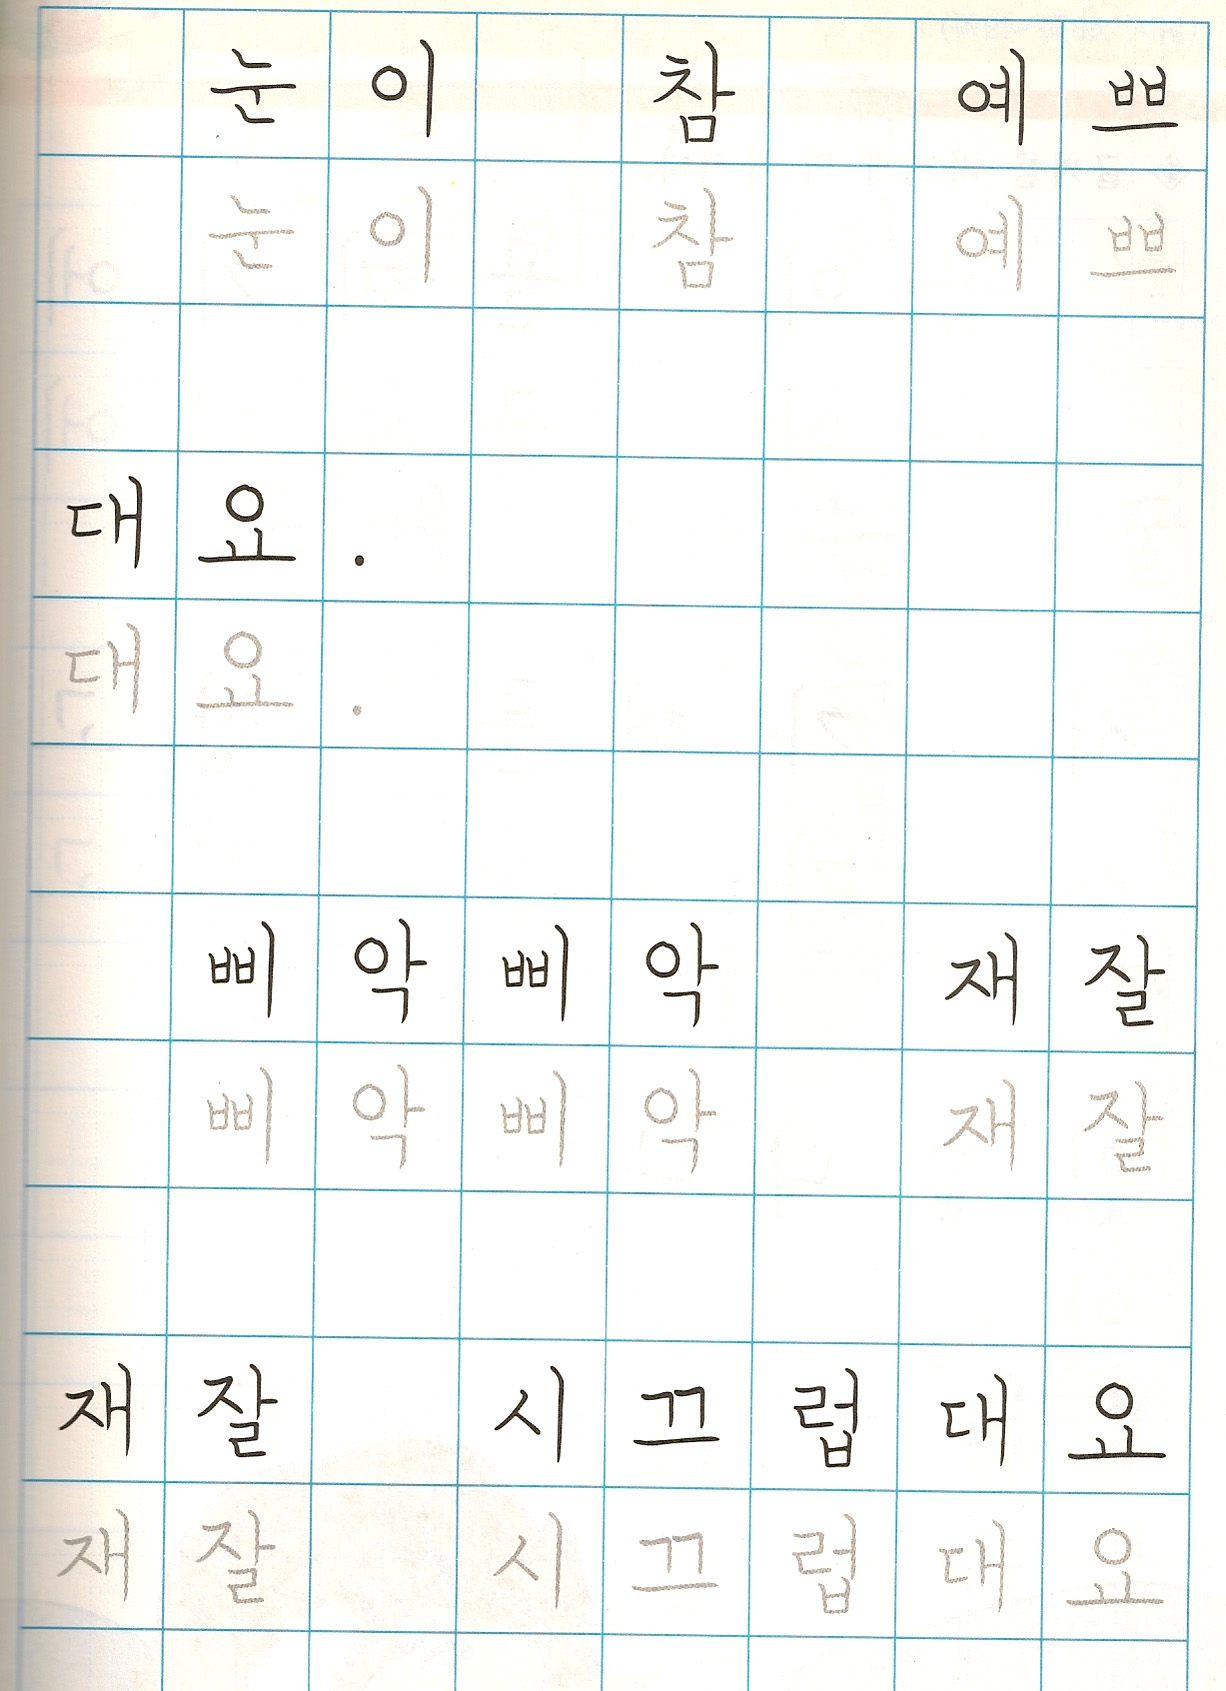 눈이 참 예쁘
눈이 참 예쁘
대요.
대요.
삐악삐악 재잘
삐악삐악 재잘
재잘 시끄럽대요
재잘 시끄럽대요